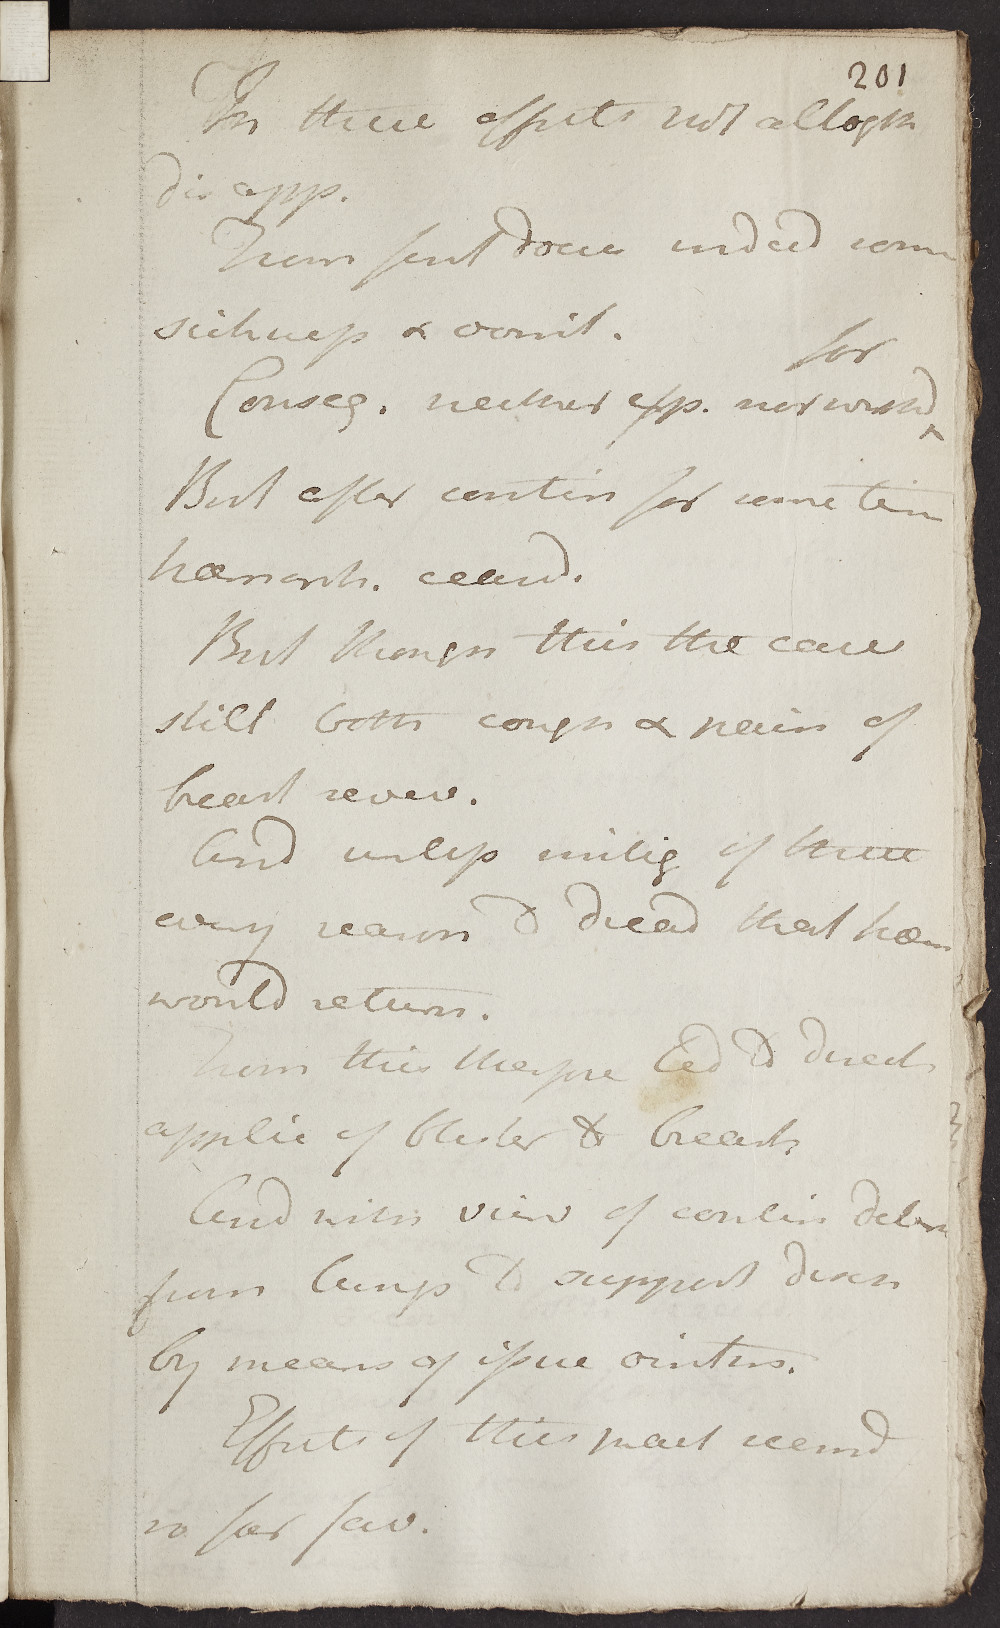 201
In these effects not altogth
disapp.
From first dose indeed some
sickness & vomit.
for
Conseq. neither exp. nor wishd ^
But after contin for some tim
hæmorrh. ceasd.
But though this the case
still both cough & pain of
breast sever.
And unless mitig of these
every reason to dread that hæm
would return.
From this therefore led to direct
applic of blister to breast
And with view of contin deter
from lungs to support disch
by means of issue ointm.
Effects of this pract seemd
so far fav.